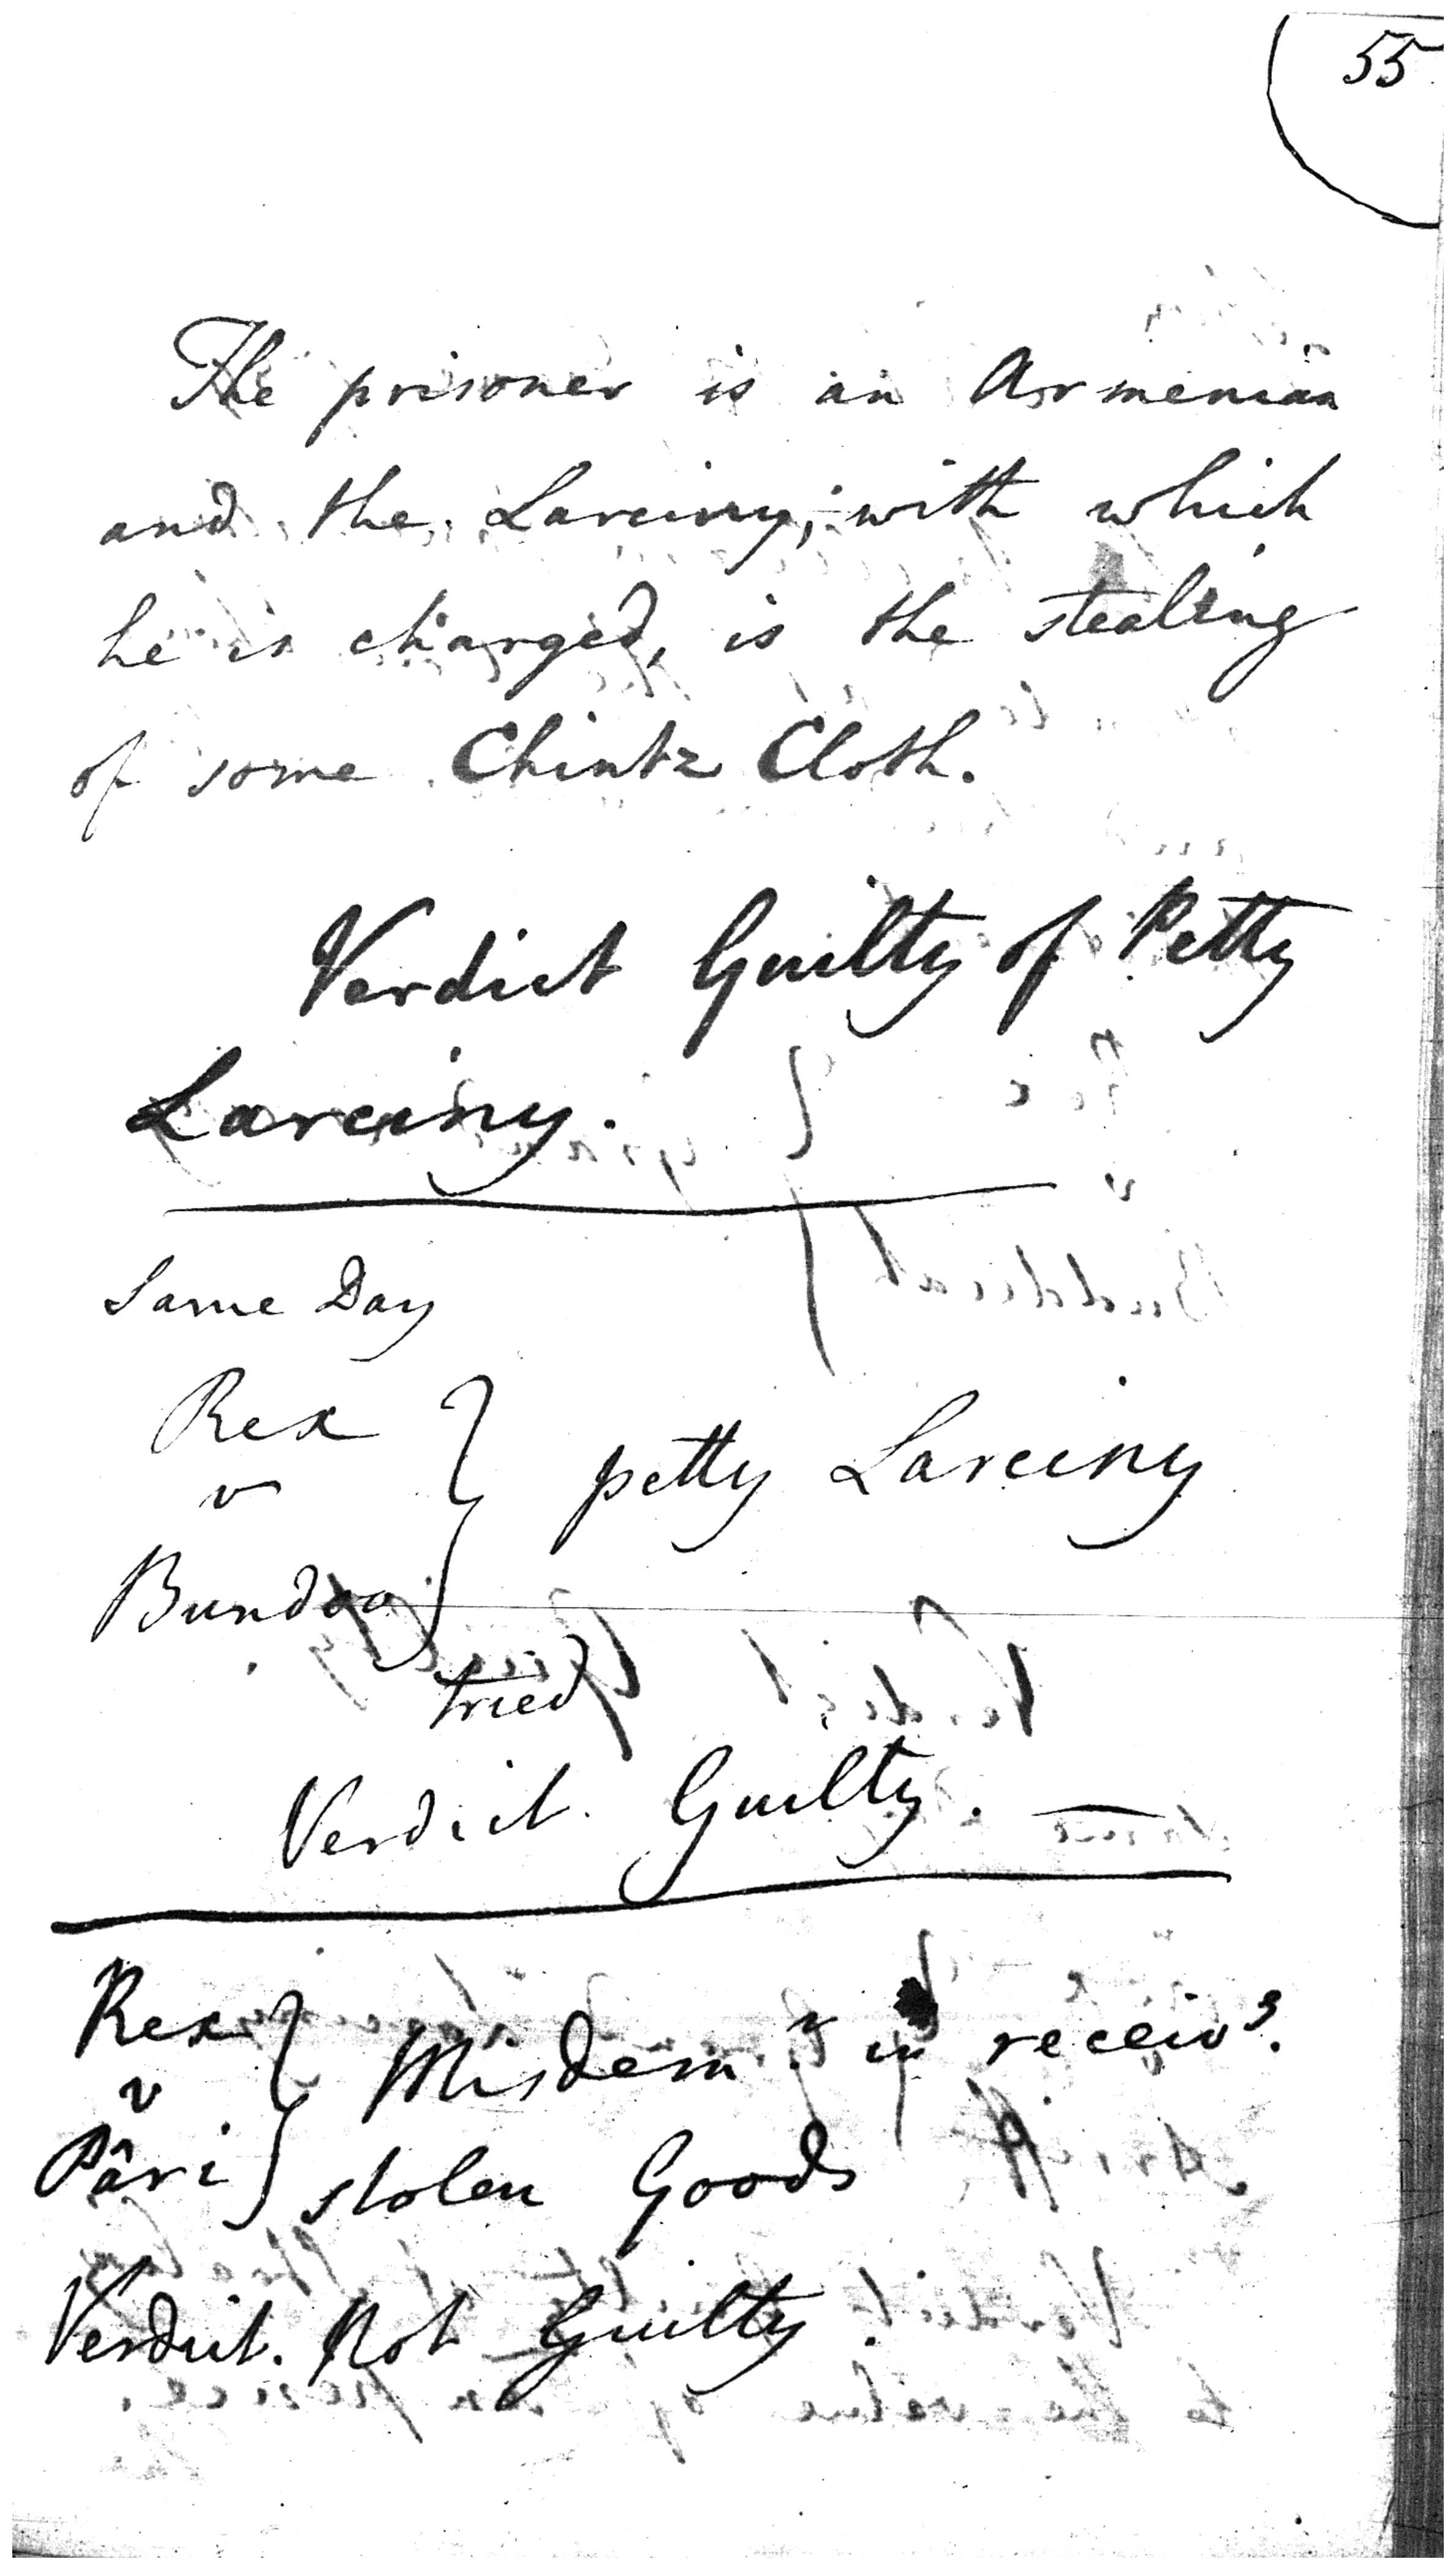 55
The prisoner is an Armenian
and the Larciny, with which
he is charged, is the stealing
of some Chintz Cloth.
Verdict Guilty of Petty
Larciny.
Same Day
Rex
v
Bundoo
petty Larciny
tried
Verdict. Guilty. —
Rex
v
Pâri
Misdemr. in receivg.
stolen Goods
Verdict. Not Guilty.